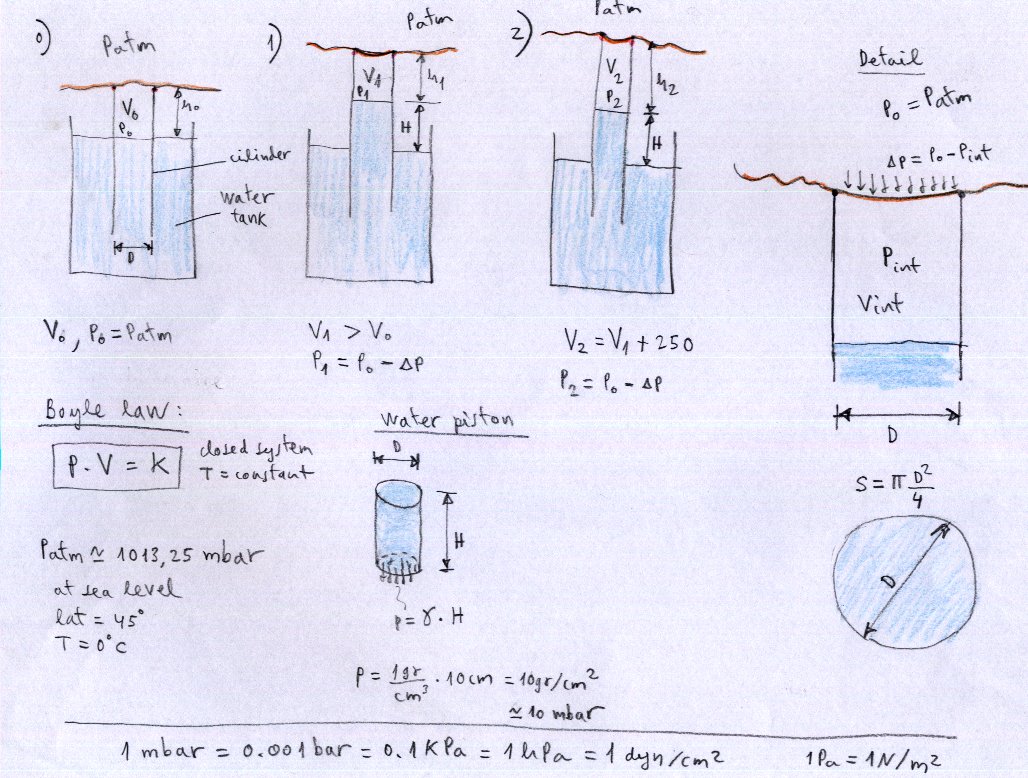 0)
Patm
V0
P0
h0
cilinder
water
tank
D
V0, P0 = Patm
1)
Patm
V1
P1
h1
H
V1 > V0
P1 = P0 - ΔP
2)
Patm
V2
P2
h2
H
V2 = V1 + 250
P2 = P0 - ΔP
Detail
P0 = Patm
ΔP = P0 - Pint
Pint
Vint
D
S = π D²/4
D
Boyle law:
P.V = K
closed system
T = constant
Patm ≃ 1013,25 mbar
at sea level
lat = 45°
T = 0°C
water piston
D
H
p = γ · H
P = 1gr/cm³ · 10cm = 10gr/cm²
≃ 10 mbar
1 mbar = 0.001 bar = 0.1 KPa = 1 hPa = 1 dyn/cm²
1Pa = 1N/m²